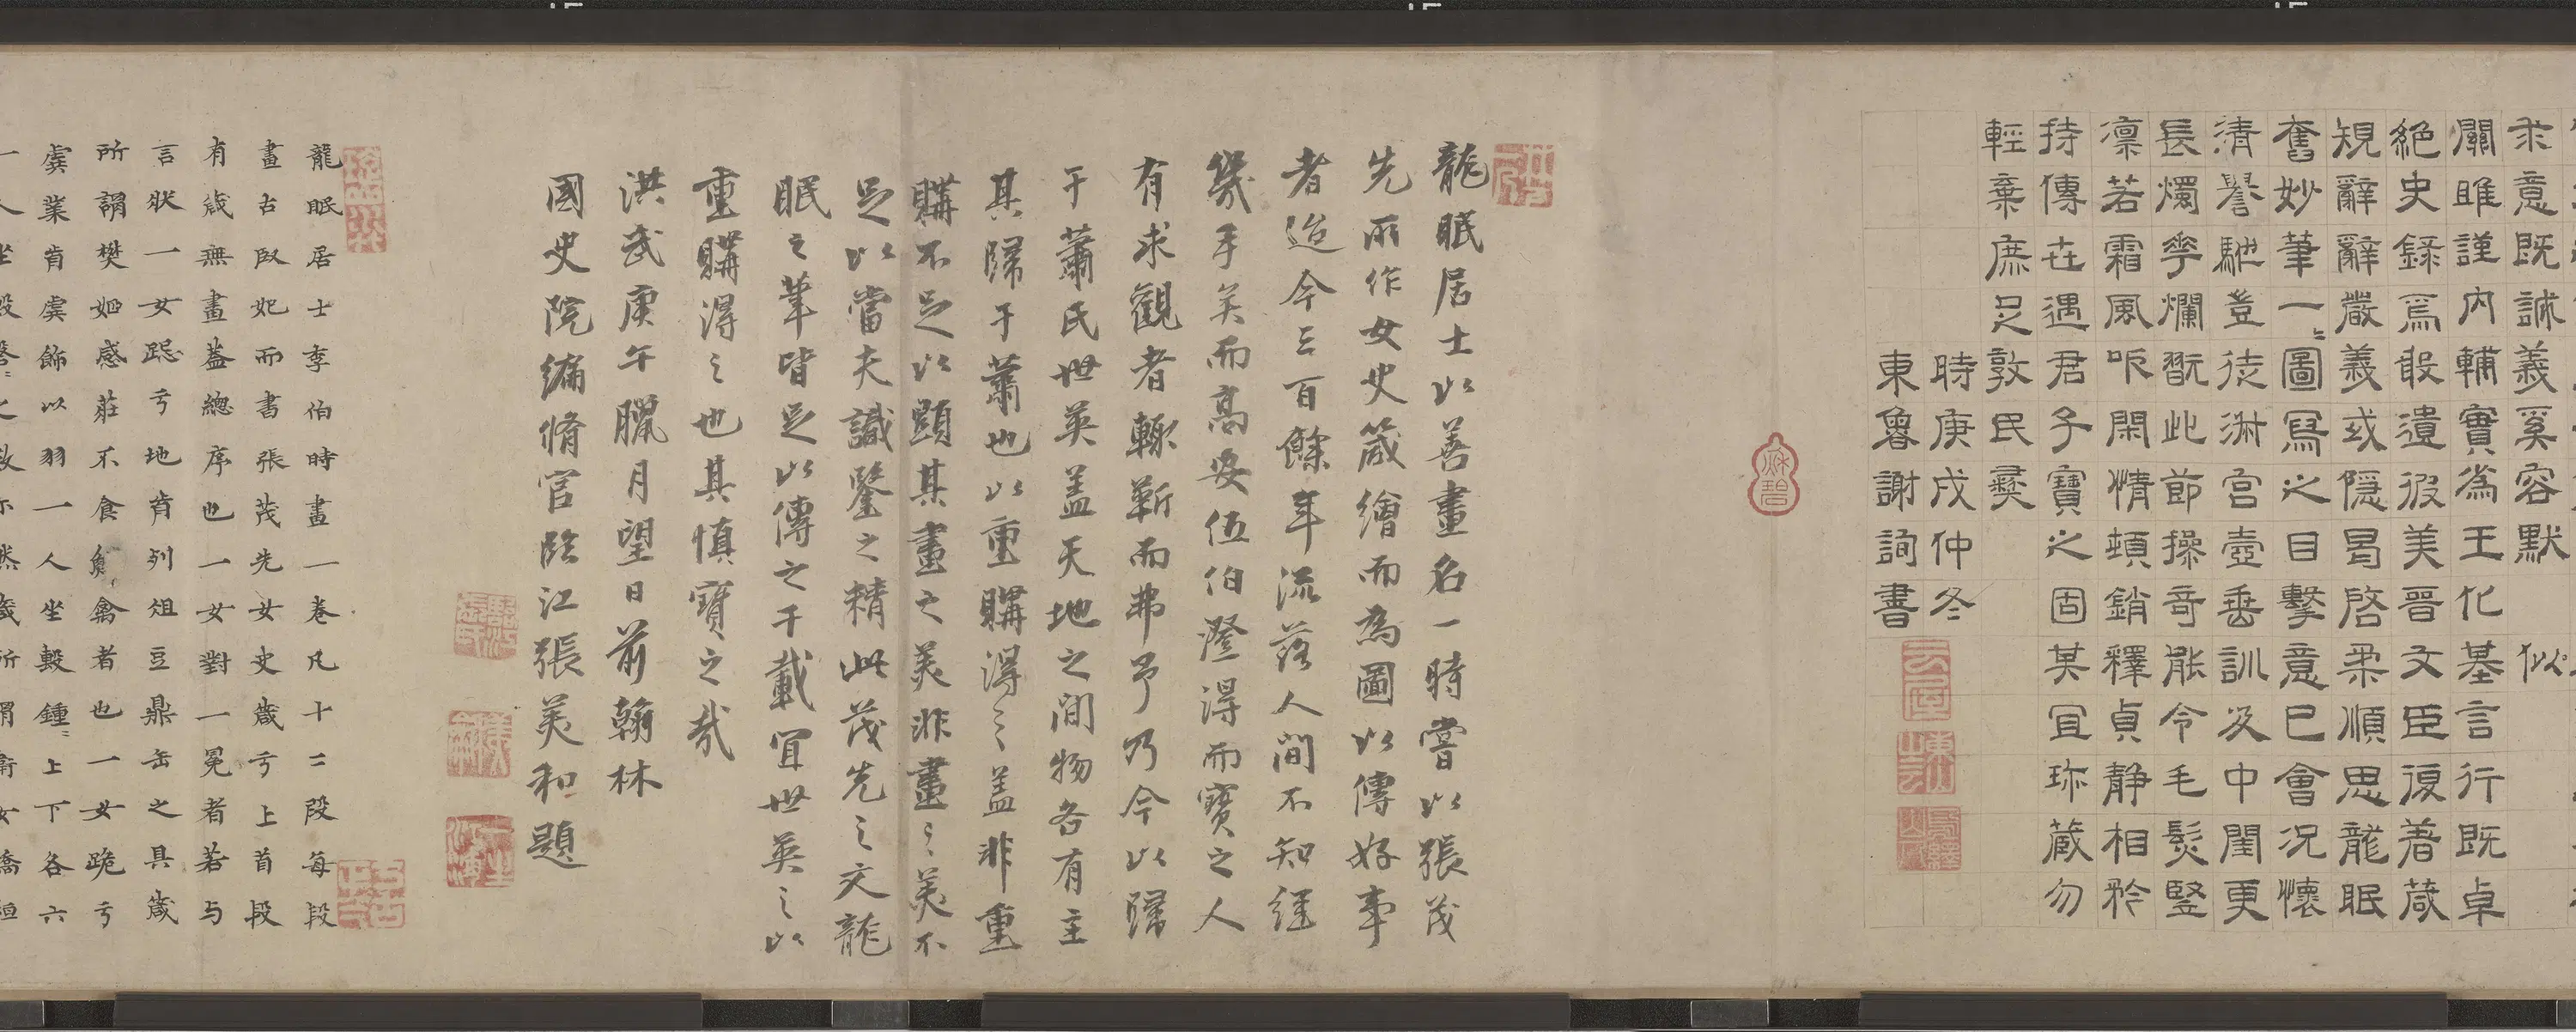 求意既誠義奚容默
關雎謹内輔實為王化基言行既卓
絕史録焉敢遺彼美晉文臣復著箴
規辭辭嚴義或隱曷啓柔順思龍眠
奮妙筆一〻圖寫之目擊意已會況懷
清譽馳豈徒淋宫壼垂訓及中閨更
長燭花爛翫此節操奇能令毛髮竪
凛若霜風吹閑情頓銷釋貞静相矜
持傳世遇君子寶之固其宜珎蔵勿
輕棄庶足敦民彝
時庚戌仲冬
東魯謝詢書
龍眠居士以善畫名一時嘗以張茂
先所作女史箴繪而為圖以傳好事
者迨今三百餘年流落人間不知經
幾手矣而高安伍伯澄得而寶之人
有求觀者輒靳而弗予乃今以歸
于蕭氏世英盖天地之間物各有主
其歸于蕭也以重購得之盖非重
購不足以顕其畫之美非畫之美不
足以當夫識鑒之精此茂先之文龍
眠之筆皆足以傳之千載冝世英之以
重購得之也其慎寶之哉
洪武庚午臘月望日前翰林
國史院編脩官臨江張美和題
龍眠居士李伯時畫一卷凡十二段每段
畫古后妃而書張茂先女史箴亏上首段
有箴無畫葢總序也一女對一冕者若与
言狀一女跽亏地肯列俎豆鼎缶之具箴
所謂樊姬感莊不食鮮禽者也一女跪亏
虡業肯虡飾以羽一人坐毄鍾〻上下各六